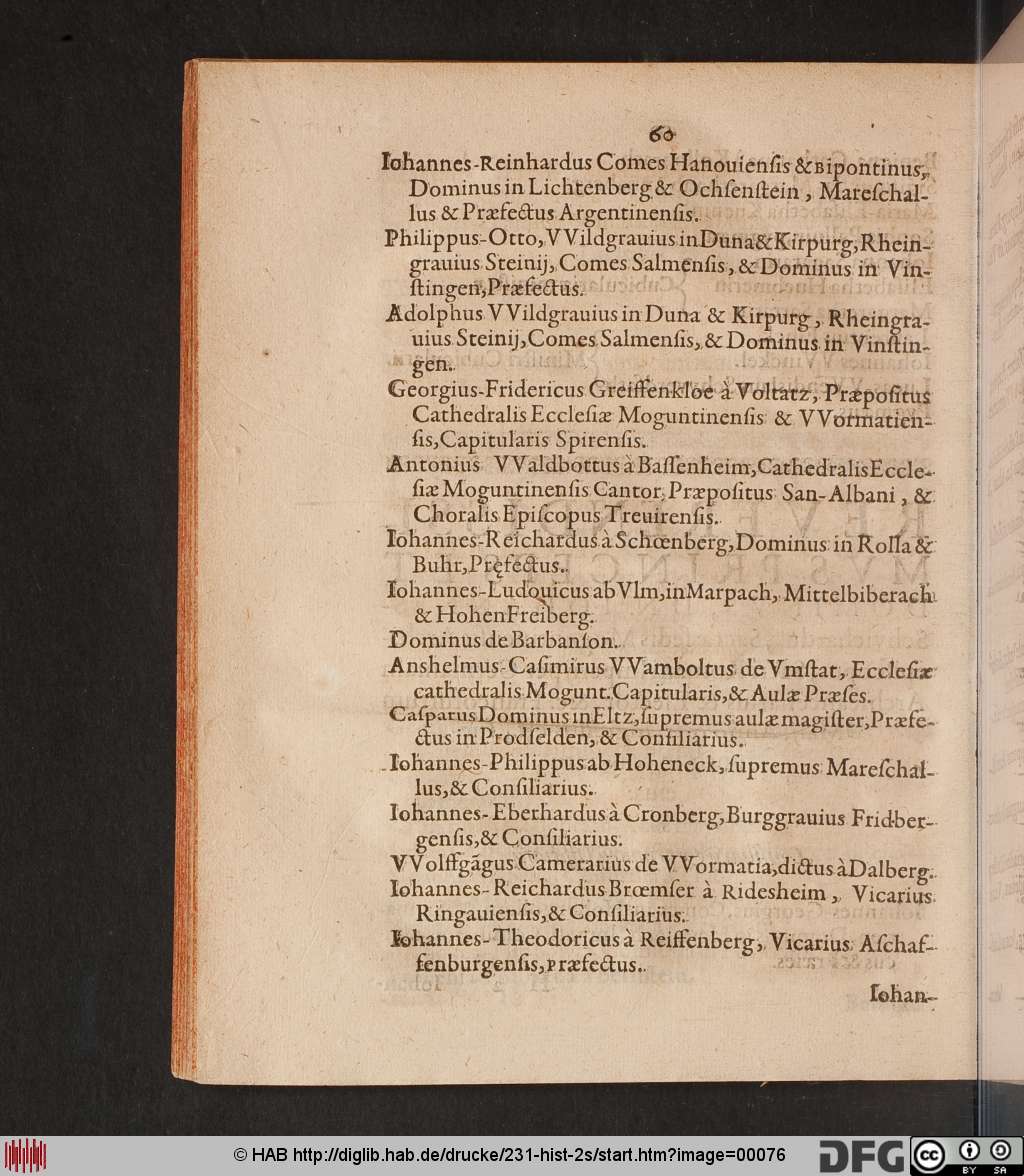 60
Iohannes-Reinhardus Comes Hanouienſis & Bipontinus,
Dominus in Lichtenberg & Ochſenſtein, Mareſchal-
lus & Præfectus Argentinenſis.
Philippus-Otto, VVildgrauius in Duna & Kirpurg, Rhein-
grauius Steinij, Comes Salmenſis, & Dominus in Vin-
ſtingen, Præfectus.
Adolphus VVildgrauius in Duna & Kirpurg, Rheingra-
uius Steinij, Comes Salmenſis, & Dominus in Vinſtin-
gen.
Georgius-Fridericus Greiffenkloe à Voltatz, Præpoſitus
Cathedralis Eccleſiæ Moguntinenſis & VVormatien-
ſis, Capitularis Spirenſis.
Antonius VValdbottus à Baſſenheim, Cathedralis Eccle-
ſiæ Moguntinenſis Cantor, Præpoſitus San-Albani, &
Choralis Epiſcopus Treuirenſis.
Iohannes-Reichardus à Schœnberg, Dominus in Rolla &
Buhr, Pręfectus.
Iohannes-Ludouicus ab Vlm, in Marpach, Mittelbiberach
& HohenFreiberg.
Dominus de Barbanſon.
Anshelmus-Caſimirus VVamboltus de Vmſtat, Eccleſiæ
cathedralis Mogunt. Capitularis, & Aulæ Præſes.
Caſparus Dominus in Eltz, ſupremus aulæ magiſter, Præfe-
ctus in Prodſelden, & Conſiliarius.
Iohannes-Philippus ab Hoheneck, ſupremus Mareſchal-
lus, & Conſiliarius.
Iohannes-Eberhardus à Cronberg, Burggrauius Fridber-
genſis, & Conſiliarius.
VVolffgãgus Camerarius de VVormatia, dictus à Dalberg.
Iohannes-Reichardus Brœmſer à Ridesheim, Vicarius
Ringauienſis, & Conſiliarius.
Iohannes-Theodoricus à Reiffenberg, Vicarius Aſchaf-
fenburgenſis, Præfectus.
Iohan-
© HAB http://diglib.hab.de/drucke/231-hist-2s/start.htm?image=00076
DFG
cc
BY SA